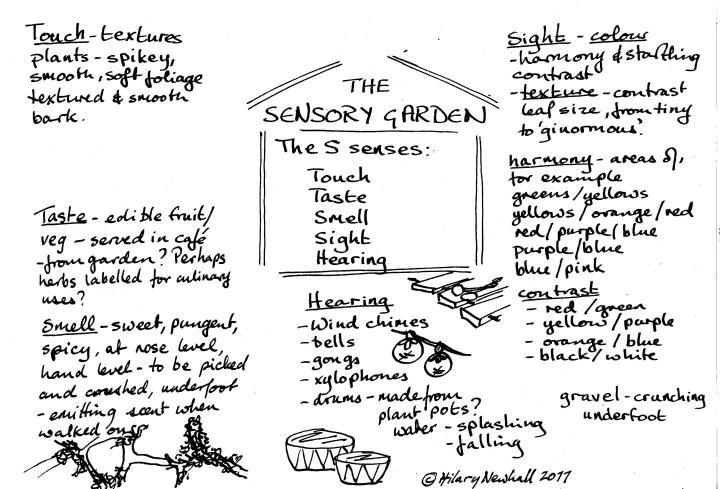 Touch - textures
plants - spikey,
smooth, soft foliage
textured & smooth
bark.
THE
SENSORY GARDEN
The 5 senses:
Touch
Taste
Smell
Sight
Hearing
Sight - colour
- harmony & startling
contrast
- texture - contrast
leaf size, from tiny
to 'ginormous'.
harmony - areas of,
for example
greens/yellows
yellows/orange/red
red/purple/blue
purple/blue
blue/pink
contrast
- red/green
- yellow/purple
- orange/blue
- black/white
gravel - crunching
underfoot
Taste - edible fruit/
veg - served in café
- from garden? Perhaps
herbs labelled for culinary
uses?
Smell - sweet, pungent,
spicy, at nose level,
hand level - to be picked
and crushed, underfoot
- emitting scent when
walked on
Hearing
- Wind chimes
- bells
- gongs
- xylophones
- drums - made from
plant pots?
water - splashing
- falling
© Hilary Newhall 2011